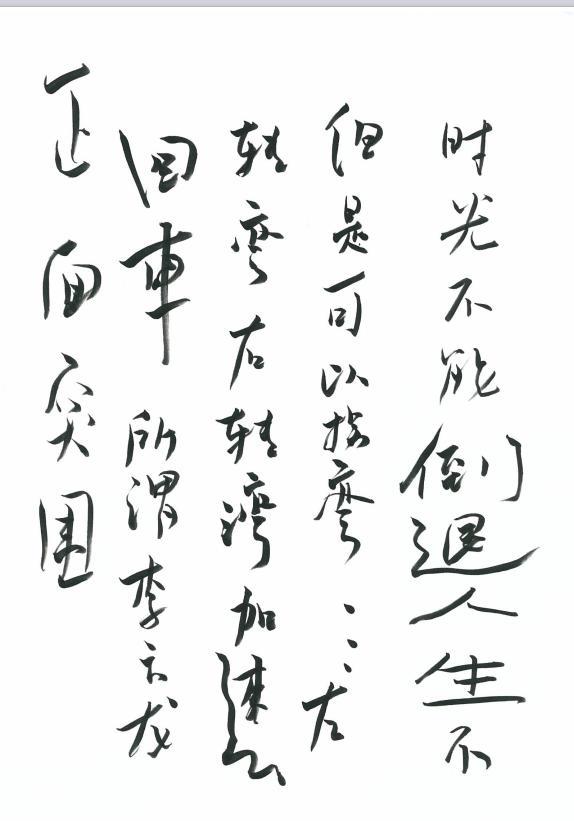 时光不能倒退人生不
但是可以拐弯……左
转弯右转湾加速
回車所谓李云龙
正面突围